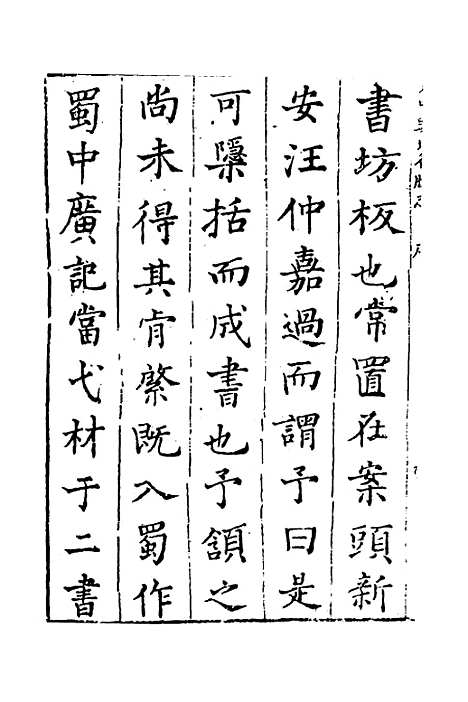 書坊板也常置在案頭新
安汪仲嘉過而謂予曰是
可檃括而成書也予頷之
尚未得其肯綮既入蜀作
蜀中廣記當弋材于二書